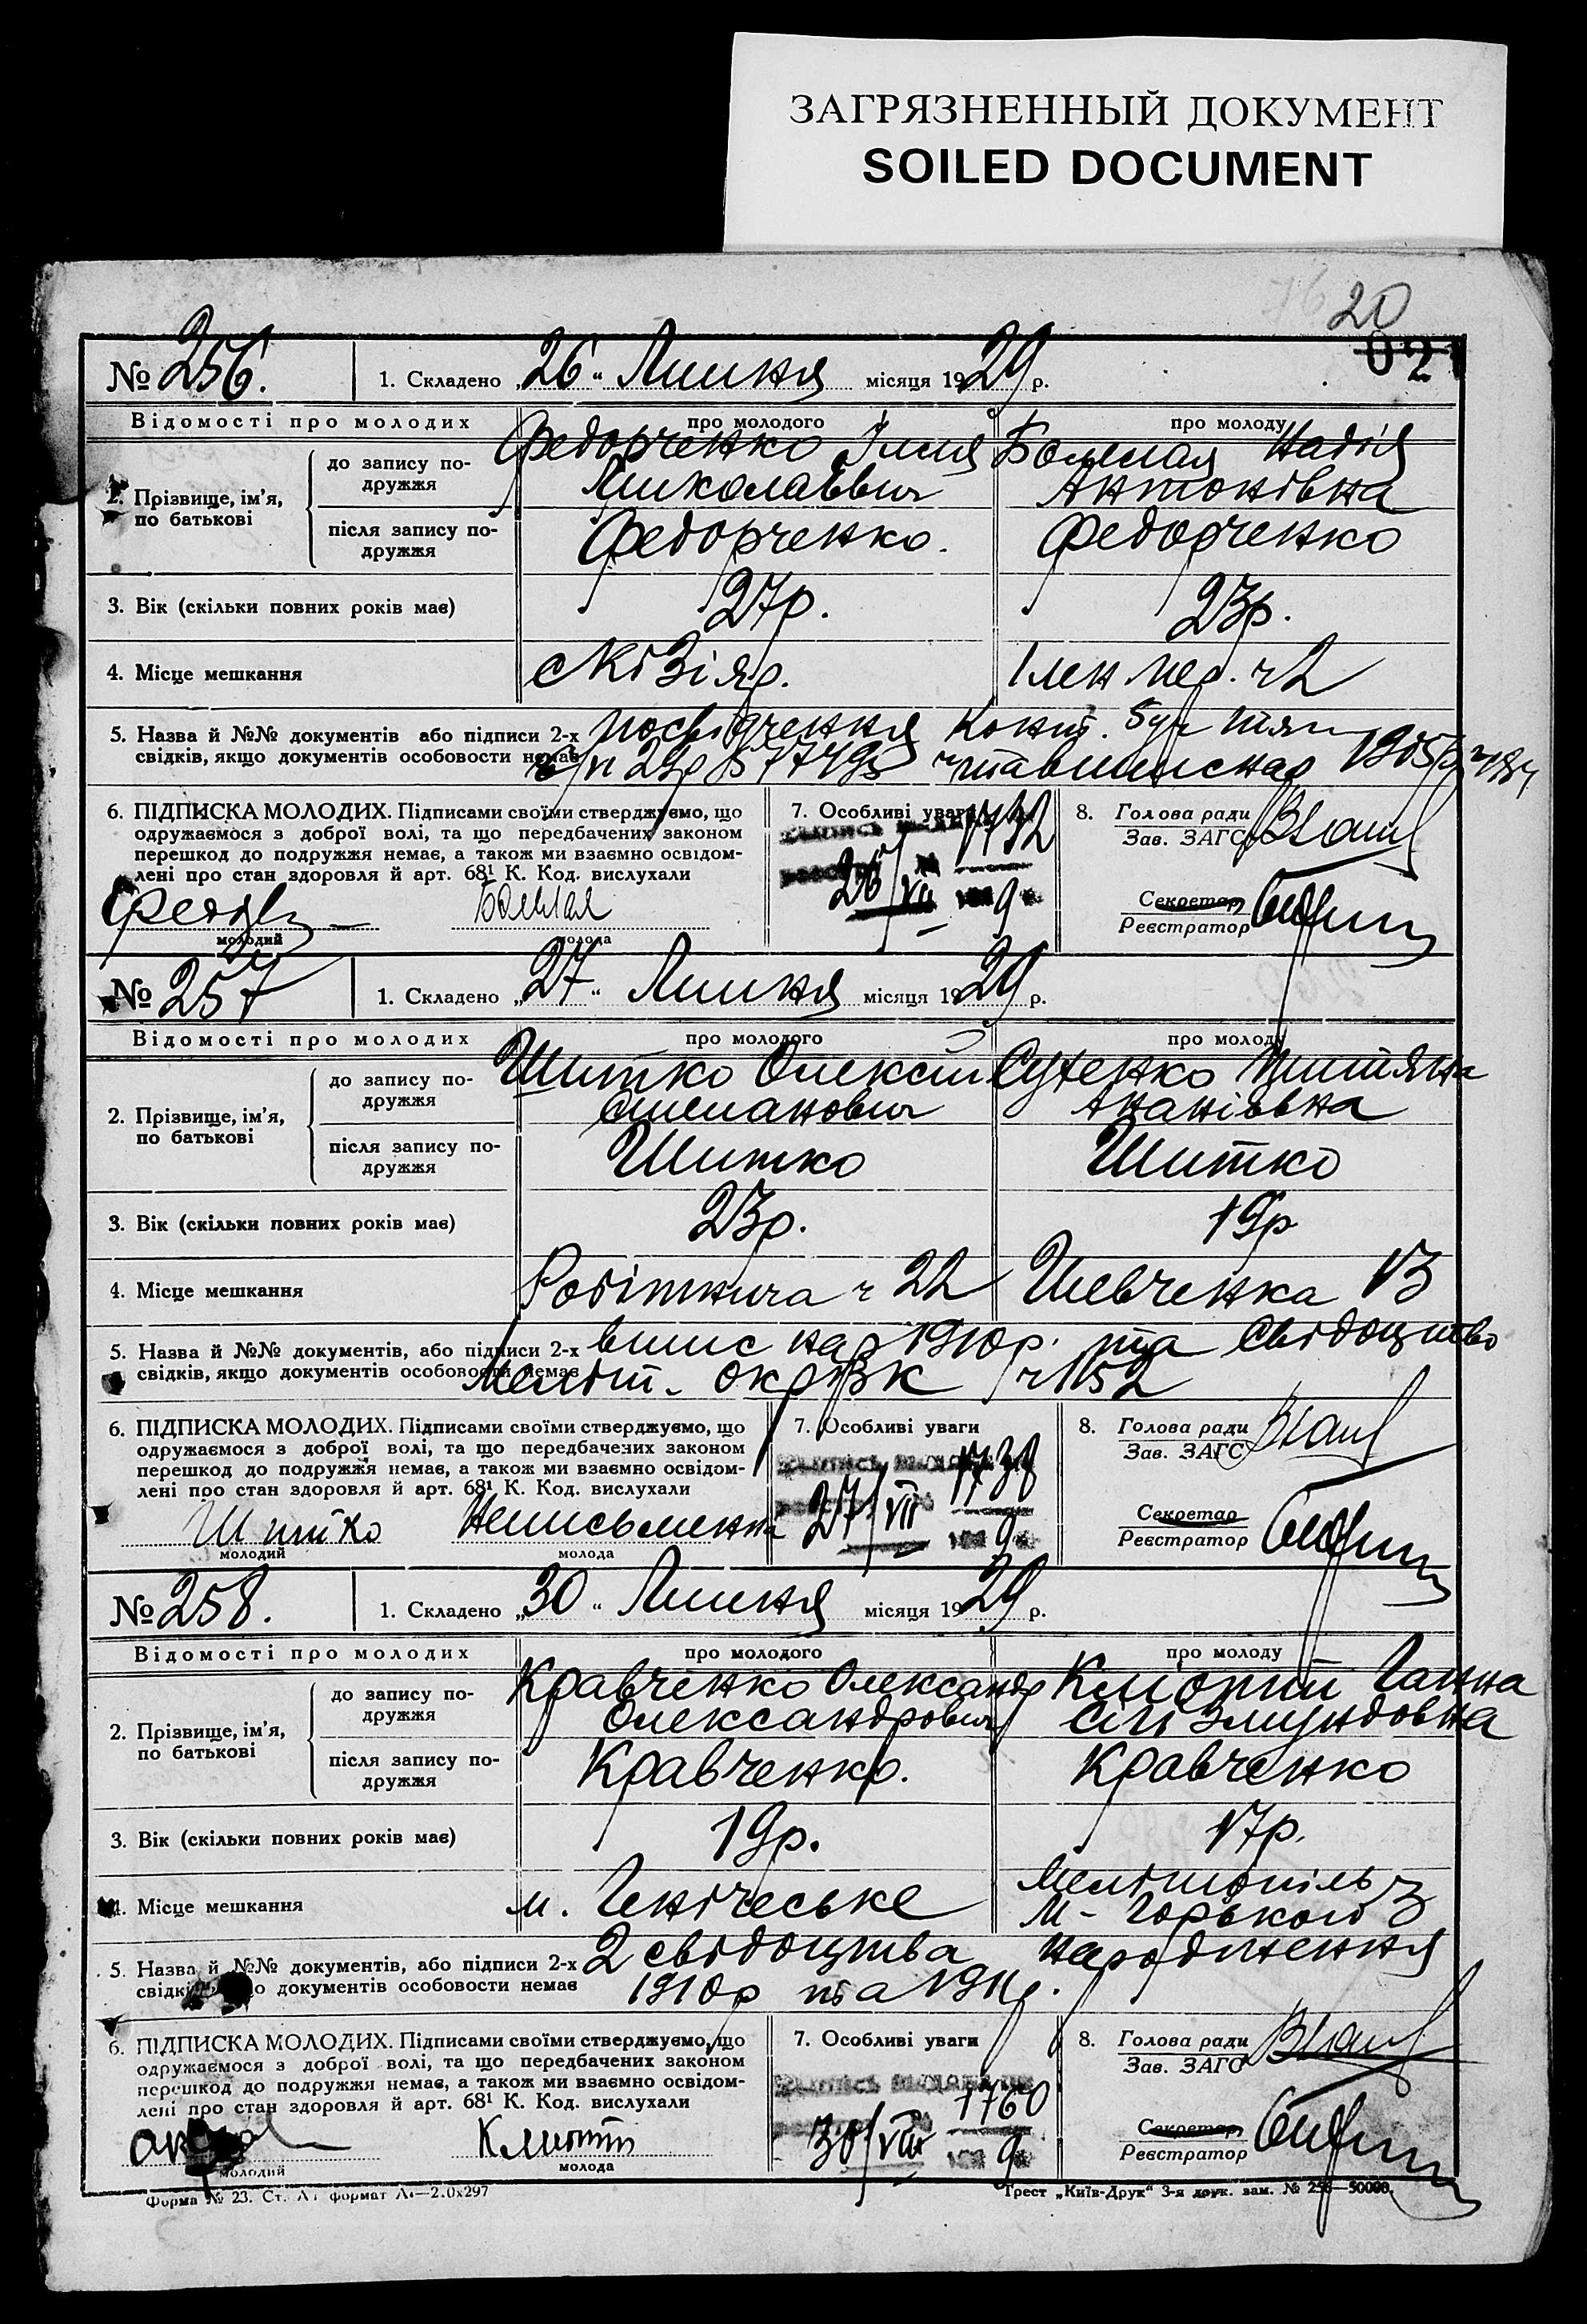 ЗАГРЯЗНЕННЫЙ ДОКУМЕНТ
SOILED DOCUMENT
20
021
№ 256. 1. Складено „26“ Липня місяця 1929 р.
Відомості про молодих про молодого про молоду
2. Прізвище, ім'я, по батькові
до запису подружжя Федорченко Ілля Миколаєвич Надія Антонівна
після запису подружжя Федорченко. Федорченко
3. Вік (скільки повних років має) 27р. 23р.
4. Місце мешкання ч 2
5. Назва й №№ документів або підписи 2-х посвідчення
свідків, якщо документів особовости немає
6. ПІДПИСКА МОЛОДИХ. Підписами своїми стверджуємо, що
одружаємося з доброї волі, та що передбачених законом
перешкод до подружжя немає, а також ми взаємно освідом-
лені про стан здоровля й арт. 68¹ К. Код. вислухали
молодий молода
7. Особливі уваги
1732
26/VII 9
8. Голова ради
Зав. ЗАГС
Секретар
Реєстратор
№ 257 1. Складено „27“ Липня місяця 1929 р.
Відомості про молодих про молодого про молоду
2. Прізвище, ім'я, по батькові
до запису подружжя Шитко Олексій Степанович Сутенко Титяна Ананіївна
після запису подружжя Шитко Шитко
3. Вік (скільки повних років має) 23р. 19р
4. Місце мешкання Робітнича ч 22 Шевченка 13
5. Назва й №№ документів, або підписи 2-х випис нар 1910р. та Свідоцтво
свідків, якщо документів особовости немає Меліт. ч 1152
6. ПІДПИСКА МОЛОДИХ. Підписами своїми стверджуємо, що
одружаємося з доброї волі, та що передбачених законом
перешкод до подружжя немає, а також ми взаємно освідом-
лені про стан здоровля й арт. 68¹ К. Код. вислухали
Шитко Неписьменна
молодий молода
7. Особливі уваги
1738
27/VII 9
8. Голова ради
Зав. ЗАГС
Секретар
Реєстратор
№ 258. 1. Складено „30“ Липня місяця 1929 р.
Відомості про молодих про молодого про молоду
2. Прізвище, ім'я, по батькові
до запису подружжя Кравченко Олександр Олександрович Ганна Сігізмундовна
після запису подружжя Кравченко. Кравченко
3. Вік (скільки повних років має) 19р. 17р.
4. Місце мешкання м. Генічеське Мелітопіль М-Горького 3
5. Назва й №№ документів, або підписи 2-х 2 свідоцтва народження
свідків, якщо документів особовости немає 1910р та 1911р.
6. ПІДПИСКА МОЛОДИХ. Підписами своїми стверджуємо, що
одружаємося з доброї волі, та що передбачених законом
перешкод до подружжя немає, а також ми взаємно освідом-
лені про стан здоровля й арт. 68¹ К. Код. вислухали
молодий молода
7. Особливі уваги
1760
30/VII 9
8. Голова ради
Зав. ЗАГС
Секретар
Реєстратор
Форма № 23. Ст. формат
Трест „Київ-Друк“ 3-я друк. зам. № —50000.